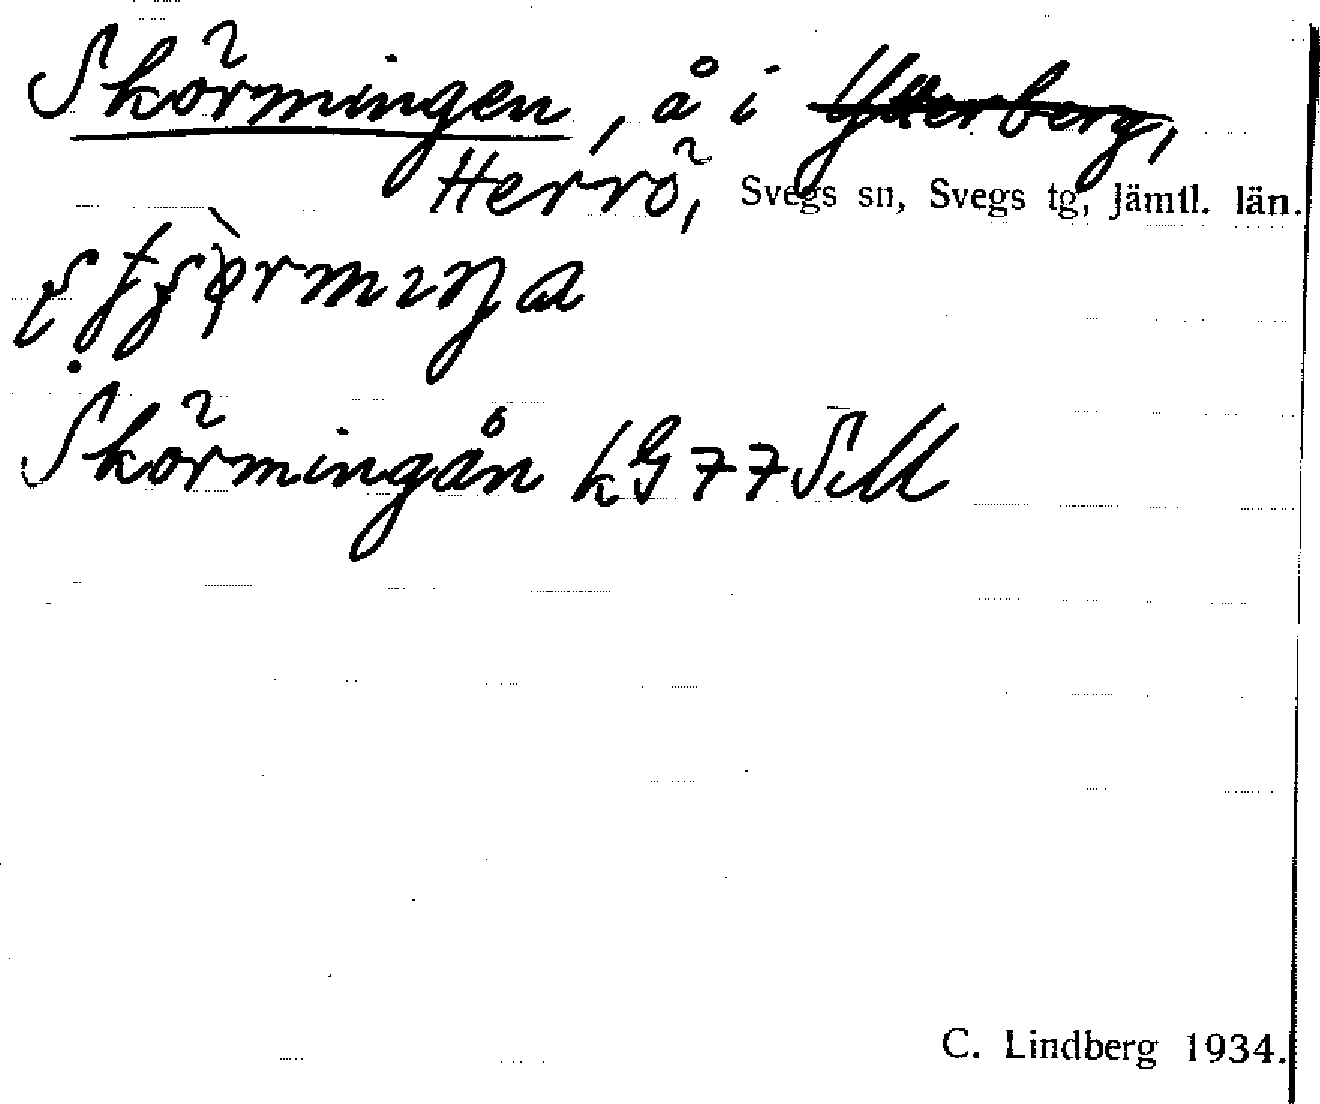 Skörmingen, å i Ytterberg,
Herrö, Svegs sn, Svegs tg, Jämtl. län.
Skörmingån kG 77 SM
C. Lindberg 1934.